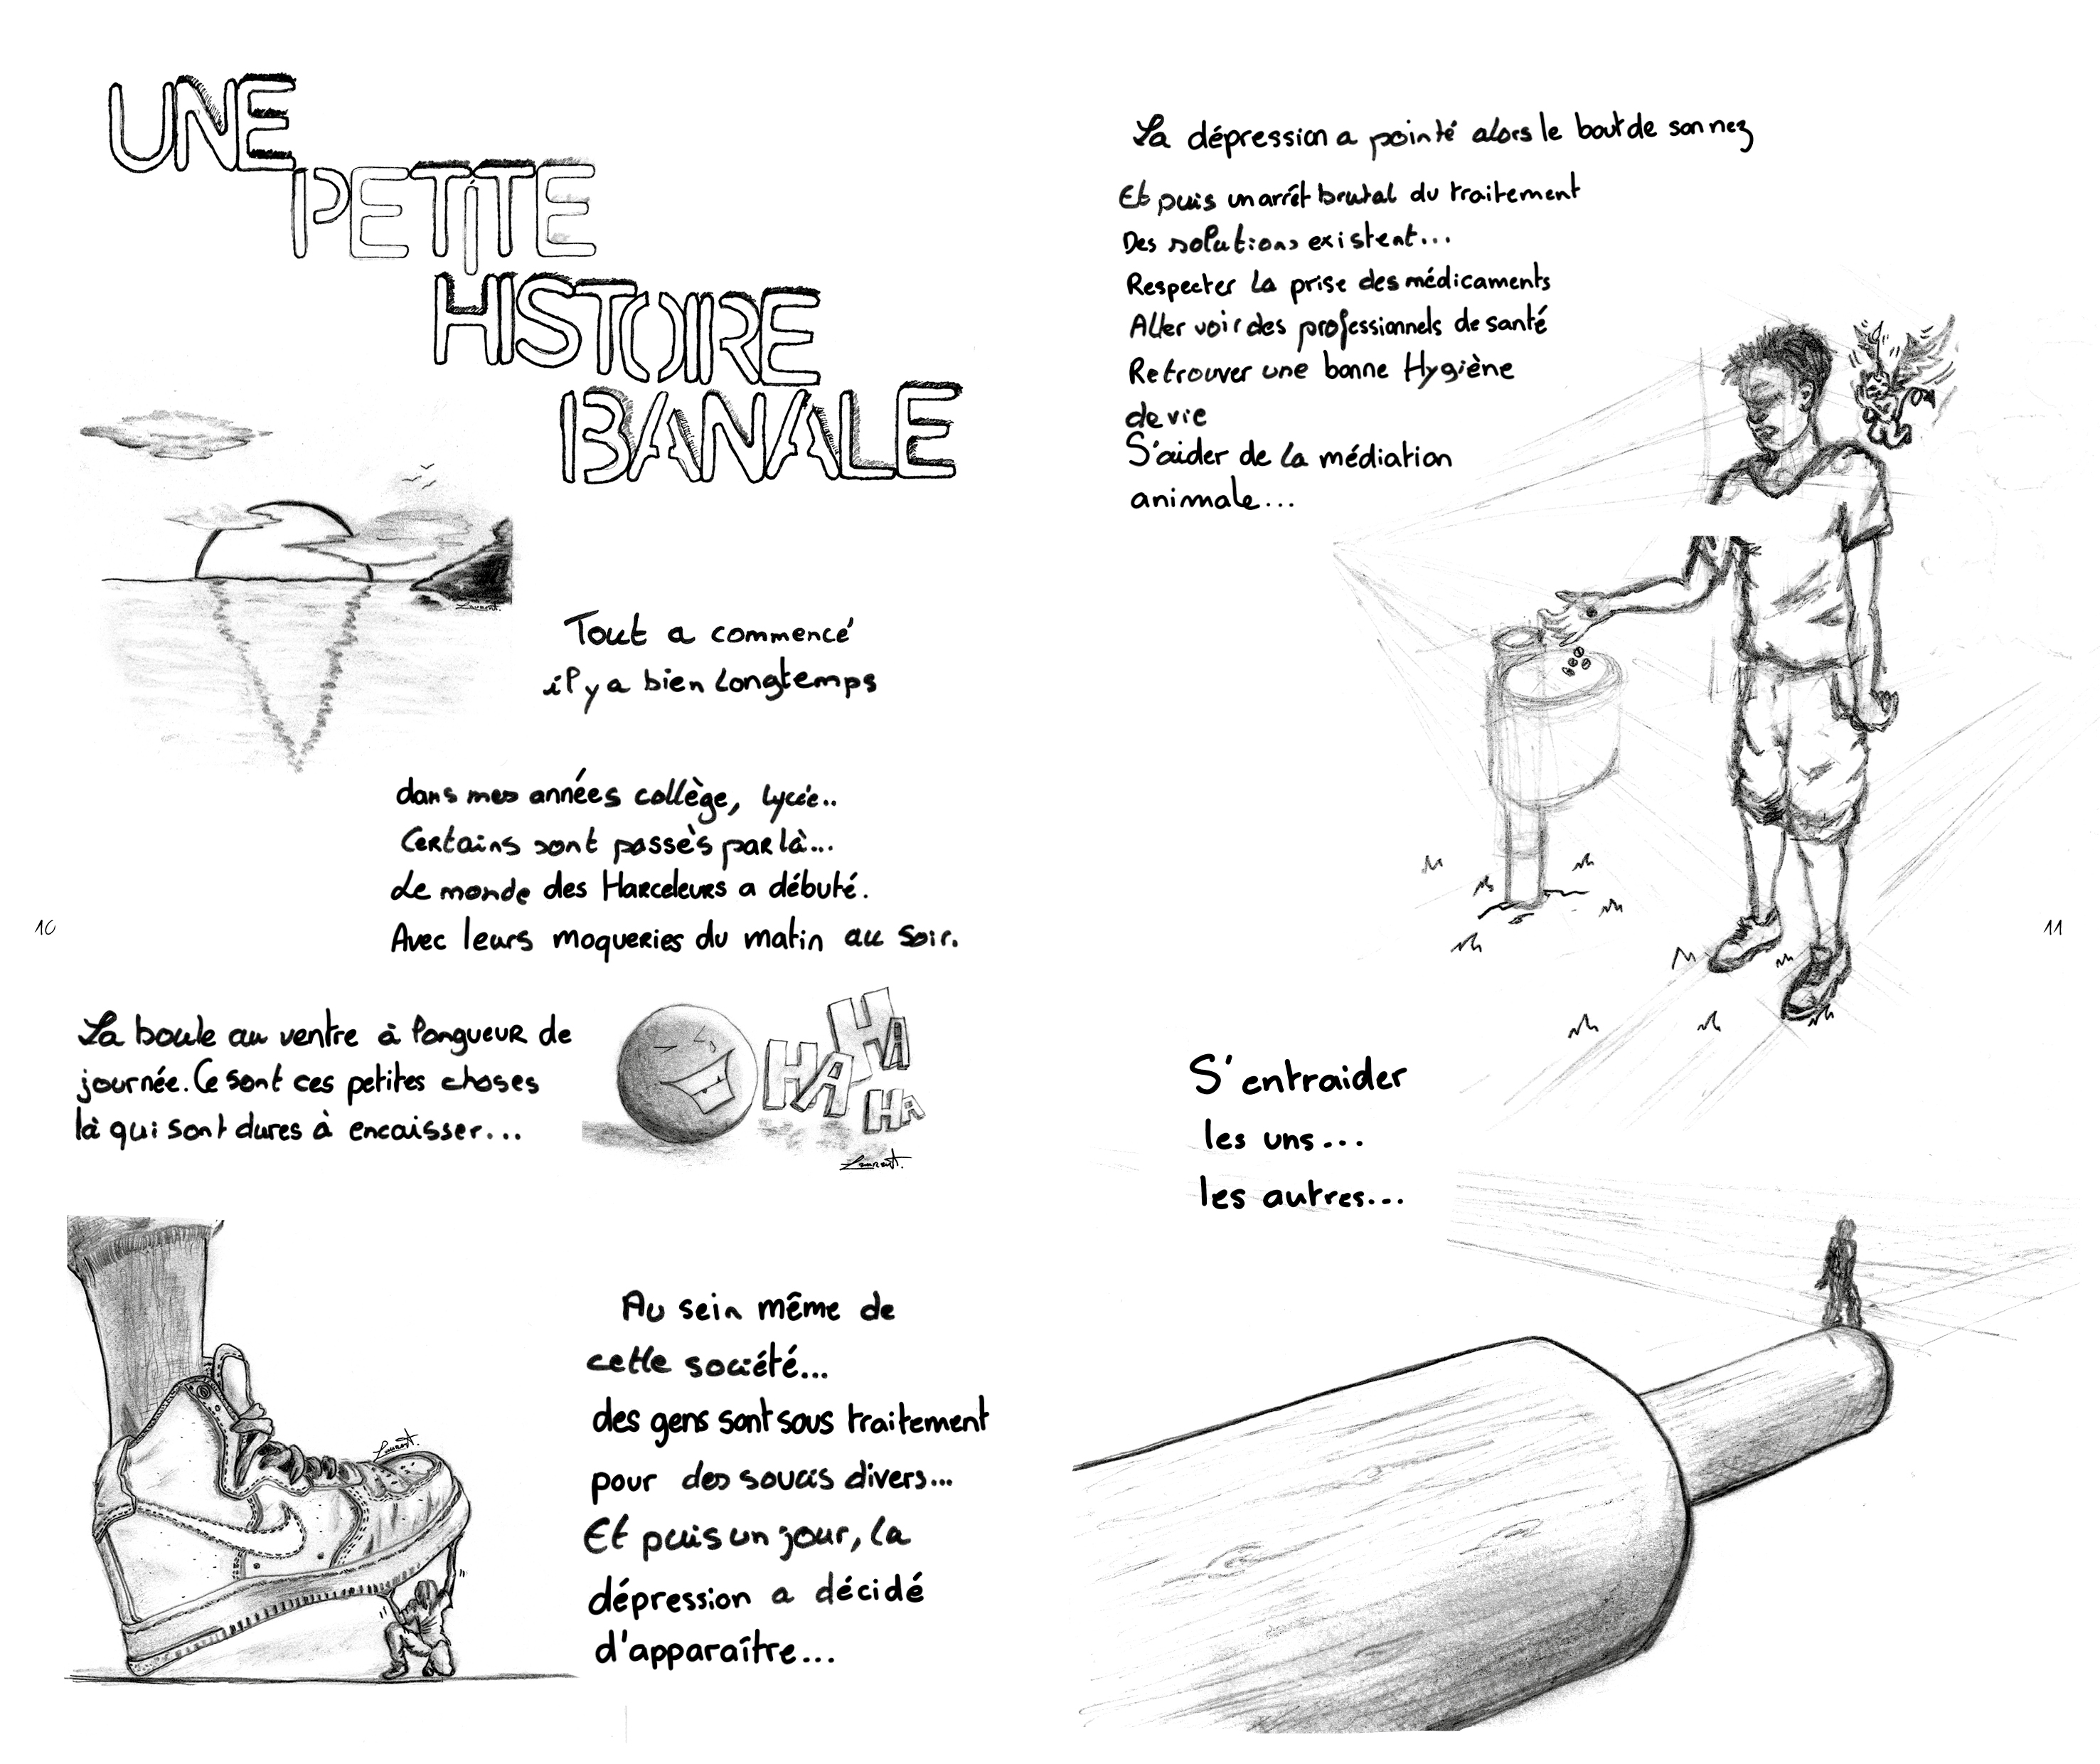 UNE
PETITE
HISTOIRE
BANALE
Laurent.
Tout a commencé
il y a bien longtemps
dans mes années collège, lycée..
Certains sont passés par là...
Le monde des Harceleurs a débuté.
Avec leurs moqueries du matin au soir.
10
La boule au ventre à longueur de
journée. Ce sont ces petites choses
là qui sont dures à encaisser...
HA HA
HA
Laurent.
Au sein même de
cette société...
des gens sont sous traitement
pour des soucis divers...
Et puis un jour, la
dépression a décidé
d'apparaître...
Laurent.
La dépression a pointé alors le bout de son nez
Et puis un arrêt brutal du traitement
Des solutions existent...
Respecter la prise des médicaments
Aller voir des professionnels de santé
Retrouver une bonne Hygiène
de vie
S'aider de la médiation
animale...
11
S'entraider
les uns...
les autres...